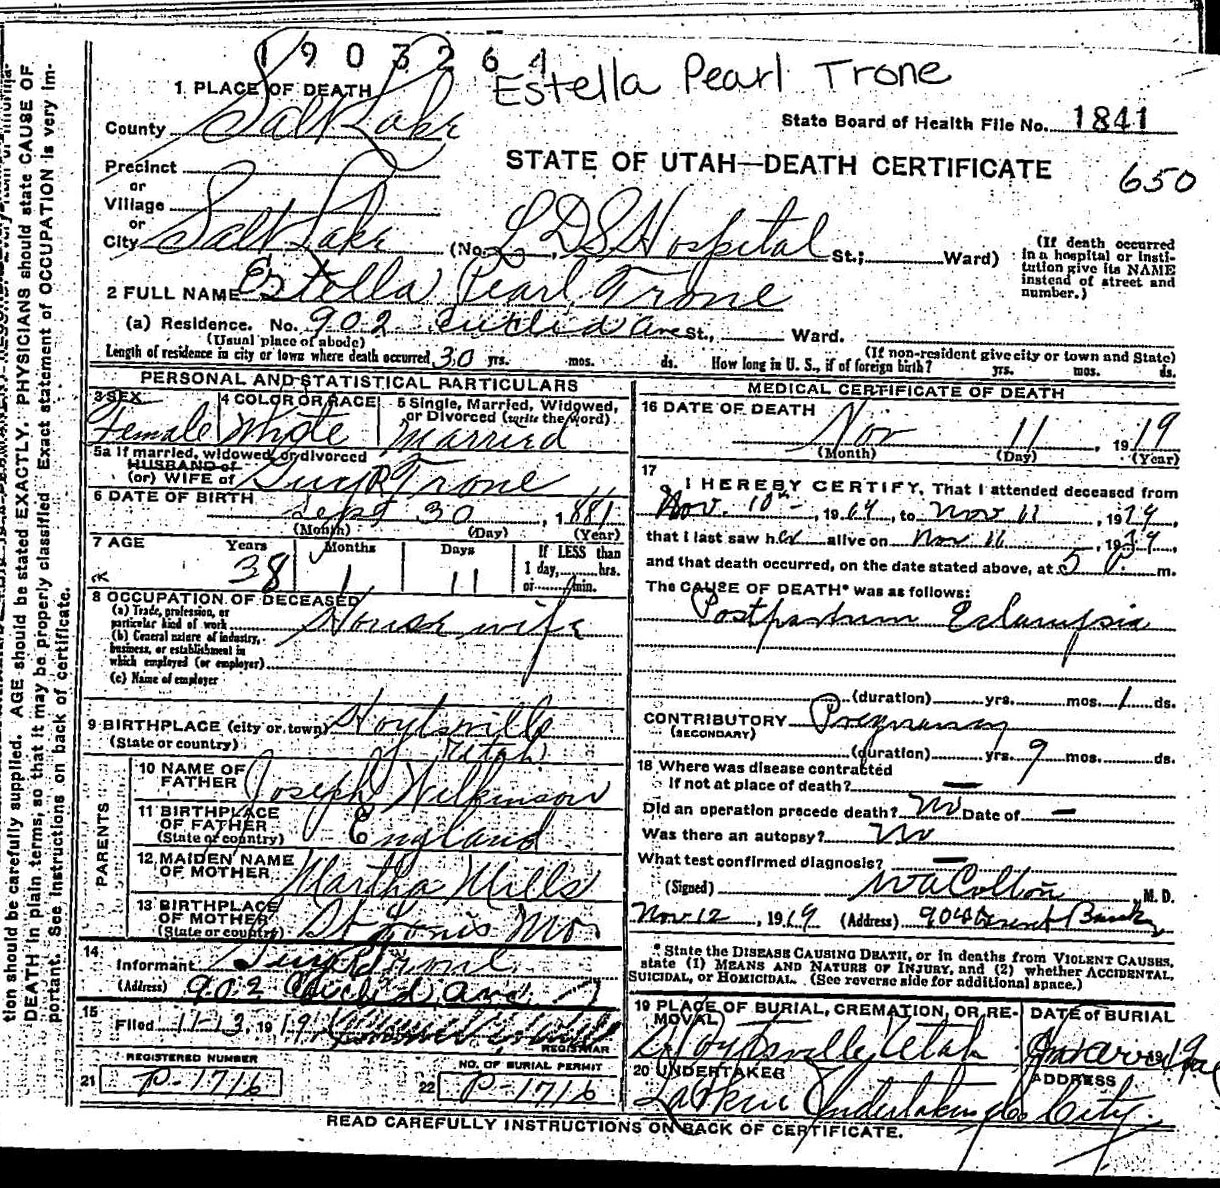 1903264
Estella Pearl Trone
1 PLACE OF DEATH
County Salt Lake
State Board of Health File No. 1841
STATE OF UTAH—DEATH CERTIFICATE
650
Precinct
or
Village
or
City Salt Lake (No. L D S Hospital St.; Ward)
(If death occurred in a hospital or institution give its NAME instead of street and number.)
2 FULL NAME Estella Pearl Trone
(a) Residence. No. 902 Euclid ave St., Ward.
(Usual place of abode) (If non-resident give city or town and State)
Length of residence in city or town where death occurred 30 yrs. mos. ds. How long in U. S., if of foreign birth? yrs. mos. ds.
PERSONAL AND STATISTICAL PARTICULARS
3 SEX Female
4 COLOR OR RACE White
5 Single, Married, Widowed, or Divorced (write the word) Married
5a If married, widowed, or divorced
HUSBAND of
(or) WIFE of Guy R Trone
6 DATE OF BIRTH Sept 30, 1881
(Month) (Day) (Year)
7 AGE Years Months Days If LESS than
38 1 11 1 day, hrs.
or min.
8 OCCUPATION OF DECEASED
(a) Trade, profession, or particular kind of work House wife
(b) General nature of industry, business, or establishment in which employed (or employer)
(c) Name of employer
9 BIRTHPLACE (city or town) Hoytsville
(State or country) Utah
PARENTS
10 NAME OF FATHER Joseph Wilkinson
11 BIRTHPLACE OF FATHER England
(State or country)
12 MAIDEN NAME OF MOTHER Martha Mills
13 BIRTHPLACE OF MOTHER St Louis Mo.
(State or country)
14 Informant Guy R Trone
(Address) 902 Euclid ave
15 Filed 11-13, 1919
REGISTRAR
REGISTERED NUMBER
21 P-1716
NO. OF BURIAL PERMIT
22 P-1716
MEDICAL CERTIFICATE OF DEATH
16 DATE OF DEATH Nov 11, 1919
(Month) (Day) (Year)
17 I HEREBY CERTIFY, That I attended deceased from
Nov. 10th, 1919, to Nov 11, 1919,
that I last saw her alive on Nov 11, 1919,
and that death occurred, on the date stated above, at 5 P. m.
The CAUSE OF DEATH* was as follows:
Postpartum Eclampsia
(duration) yrs. mos. 1 ds.
CONTRIBUTORY Pregnancy
(SECONDARY)
(duration) yrs. 9 mos. ds.
18 Where was disease contracted
if not at place of death? —
Did an operation precede death? No Date of —
Was there an autopsy? No
What test confirmed diagnosis? —
(Signed) W A Colton M. D.
Nov 12, 1919 (Address) 904 Deseret Bank
*State the DISEASE CAUSING DEATH, or in deaths from VIOLENT CAUSES,
state (1) MEANS AND NATURE OF INJURY, and (2) whether ACCIDENTAL,
SUICIDAL, or HOMICIDAL. (See reverse side for additional space.)
19 PLACE OF BURIAL, CREMATION, OR REMOVAL Hoytsville Utah
DATE of BURIAL 1919
20 UNDERTAKER Larkin Undertaking Co
ADDRESS City.
READ CAREFULLY INSTRUCTIONS ON BACK OF CERTIFICATE.
tion should be carefully supplied. AGE should be stated EXACTLY. PHYSICIANS should state CAUSE OF
DEATH in plain terms, so that it may be properly classified. Exact statement of OCCUPATION is very im-
portant. See instructions on back of certificate.